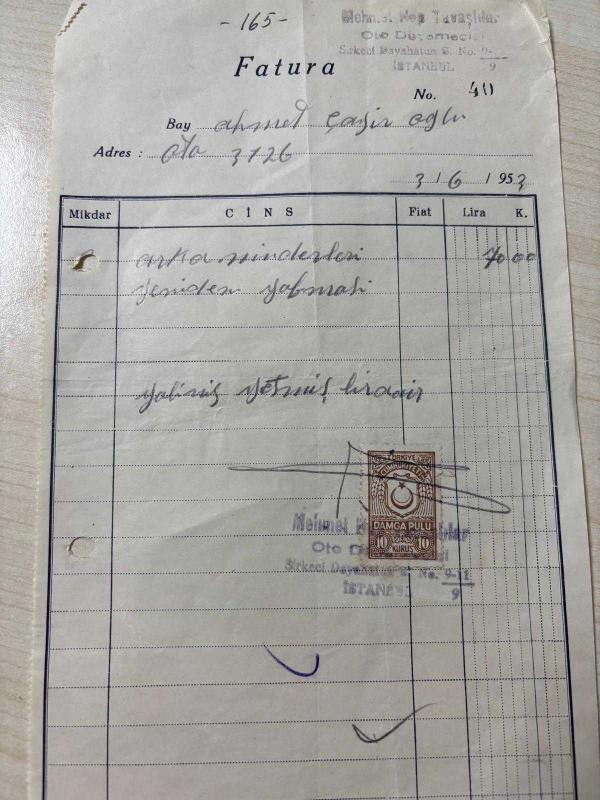 - 165 -
Mehmet
Oto Döşemecisi
Sirkeci Dayahatun S. No. 9-11/9
İSTANBUL
Fatura
No. 40
Bay ahmet oglu
Adres : Oto 3726
3 / 6 / 1953
Mikdar CİNS Fiat Lira K.
arka minderleri 70 00
yeniden yapması
yalınış yetmiş liradır
TÜRKİYE
CUMHURİYETİ
DAMGA PULU
10 KURUŞ 10
Mehmet
Oto
Sirkeci Dayahatun S. No. 9-11/9
İSTANBUL